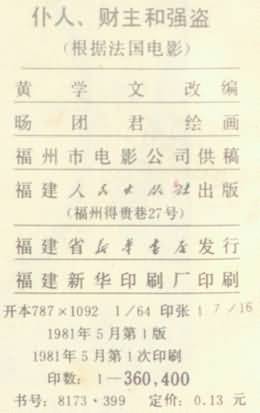 仆人、财主和强盗
(根据法国电影)
黄学文 改编
旸团君 绘画
福州市电影公司供稿
福建人民出版社出版
(福州得贵巷27号)
福建省新华书店发行
福建新华印刷厂印刷
开本787×1092 1/64 印张1 7/16
1981年5月第1版
1981年5月第1次印刷
印数:1—360,400
书号:8173·399 定价:0.13元